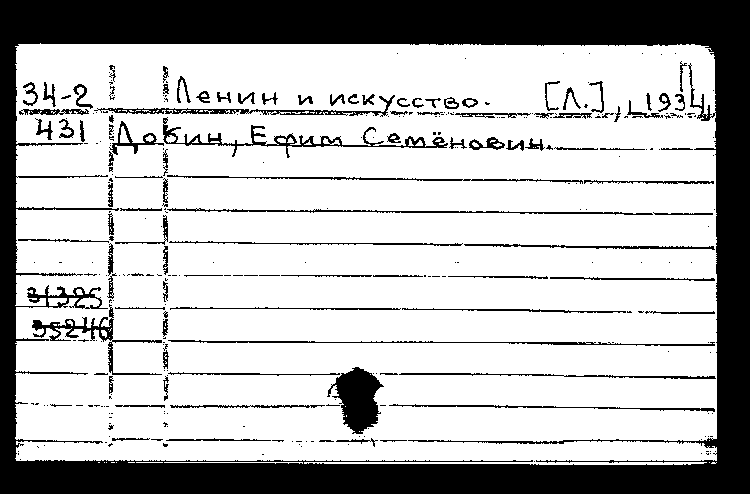 34-2 Ленин и искусство. [Л.], 1934,
431 Добин, Ефим Семёнович.
31325
35246